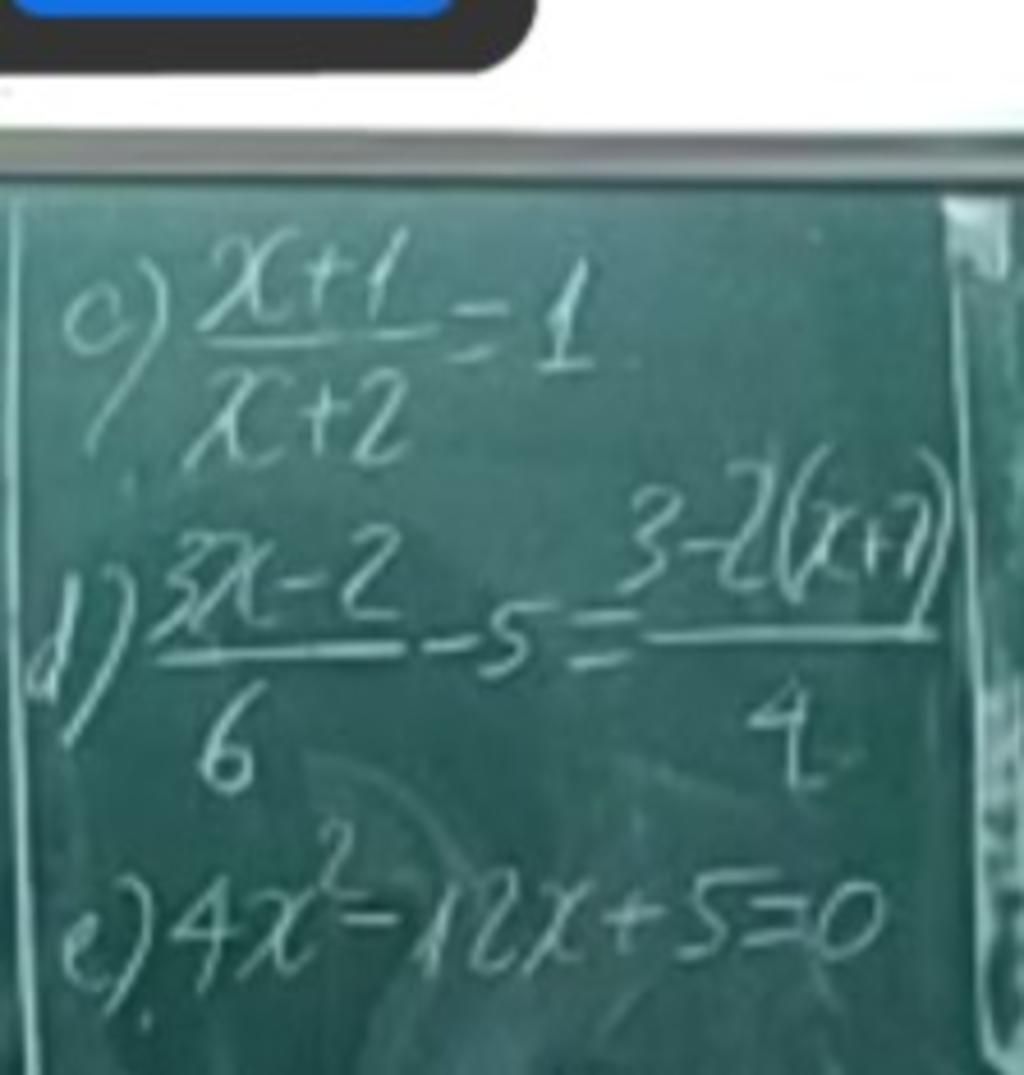 c) (x+1)/(x+2) = 1
d) (3x-2)/6 - 5 = (3-2(x+7))/4
e) 4x² - 12x + 5 = 0